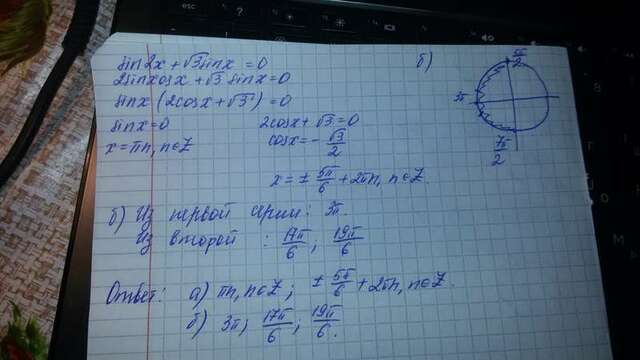 sin2x + √3 sinx = 0
2sinxcosx + √3 sinx = 0
sinx (2cosx + √3) = 0
sinx = 0
x = πn, n∈Z
2cosx + √3 = 0
cosx = - √3/2
x = ± 5π/6 + 2πn, n∈Z.
б)
5π/2
3π
7π/2
б) Из первой серии: 3π.
Из второй : 17π/6; 19π/6
Ответ: а) πn, n∈Z; ± 5π/6 + 2πn, n∈Z.
б) 3π; 17π/6; 19π/6.